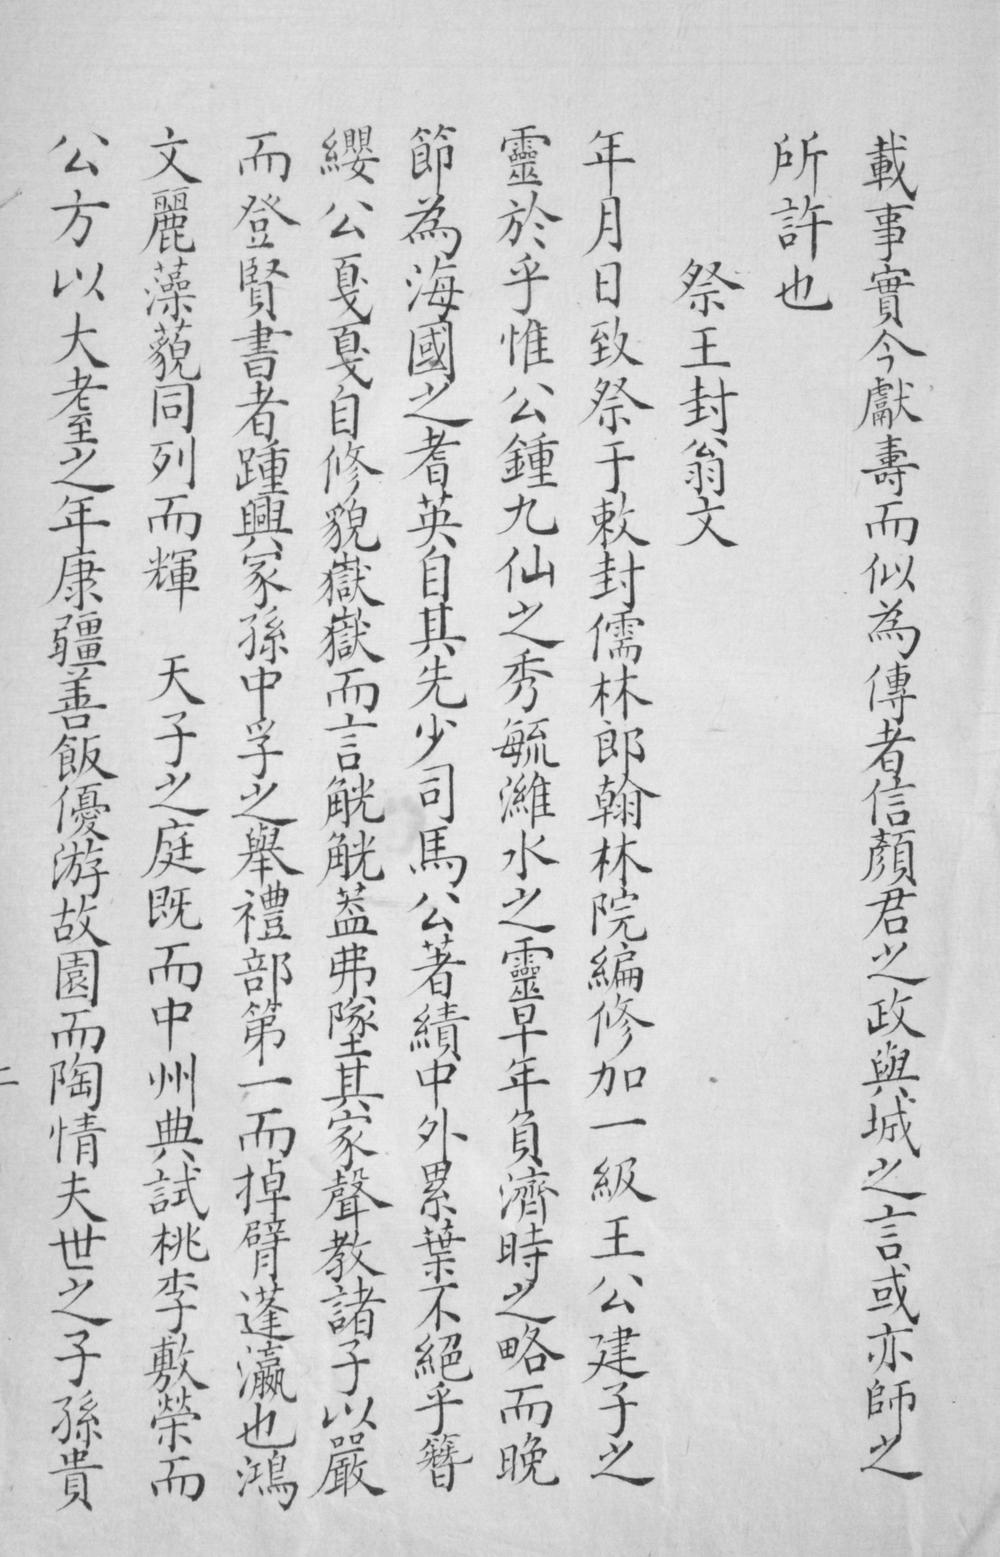 載事實今獻壽而似為傳者信顏君之政與城之言或亦師之
所許也
祭王封翁文
年月日致祭于敕封儒林郎翰林院編修加一級王公建子之
靈於乎惟公鍾九仙之秀毓濰水之靈早年負濟時之略而晚
節為海國之耆英自其先少司馬公著績中外累葉不絕乎簪
纓公戛戛自修貌嶽嶽而言觥觥蓋弗墜其家聲教諸子以嚴
而登賢書者踵興冢孫中孚之舉禮部第一而掉臂蓬瀛也鴻
文麗藻藐同列而輝 天子之庭既而中州典試桃李敷榮而
公方以大耋之年康彊善飯優游故園而陶情夫世之子孫貴
二